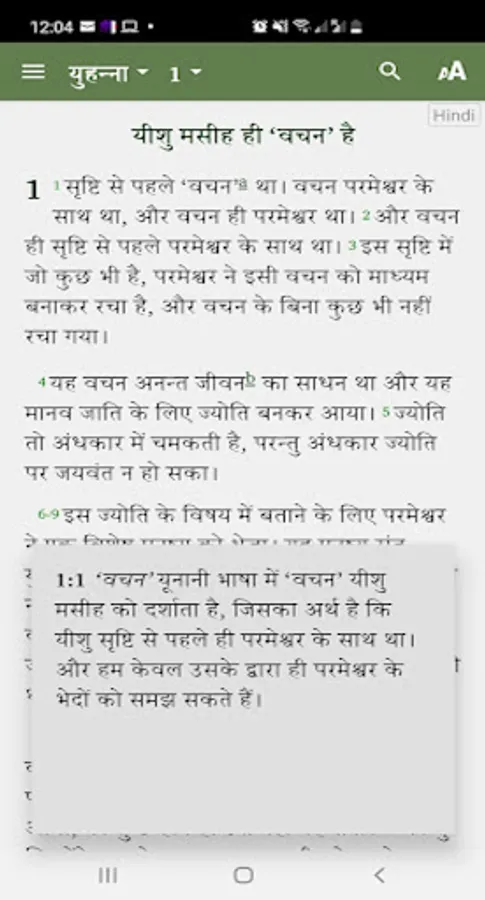 12:04
युहन्ना 1
Hindi
यीशु मसीह ही ‘वचन’ है
1 1 सृष्टि से पहले ‘वचन’a था। वचन परमेश्वर के
साथ था, और वचन ही परमेश्वर था। 2 और वचन
ही सृष्टि से पहले परमेश्वर के साथ था। 3 इस सृष्टि में
जो कुछ भी है, परमेश्वर ने इसी वचन को माध्यम
बनाकर रचा है, और वचन के बिना कुछ भी नहीं
रचा गया।
4 यह वचन अनन्त जीवनb का साधन था और यह
मानव जाति के लिए ज्योति बनकर आया। 5 ज्योति
तो अंधकार में चमकती है, परन्तु अंधकार ज्योति
पर जयवंत न हो सका।
6-9 इस ज्योति के विषय में बताने के लिए परमेश्वर
1:1 ‘वचन’ यूनानी भाषा में ‘वचन’ यीशु
मसीह को दर्शाता है, जिसका अर्थ है कि
यीशु सृष्टि से पहले ही परमेश्वर के साथ था।
और हम केवल उसके द्वारा ही परमेश्वर के
भेदों को समझ सकते हैं।